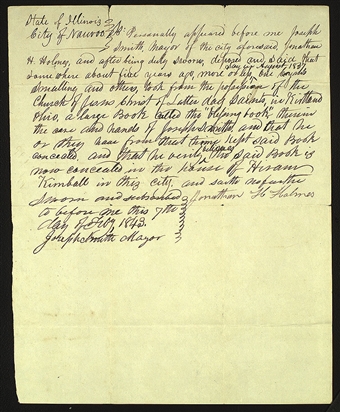 State of Illinois
City of Nauvoo } ss Personally appeared before me Joseph
Smith, Mayor of the city aforesaid, Jonathan
H. Holmes, and after being duly sworn, depose and said that
say in August, 1837,
somewhere about five years ago, more or less, one
Smealling and others, took from the possession of the
Church of Jesus Christ of Latter day Saints, in Kirtland
Ohio, a large Book called the "blessing book" then in
the care and hands of Joseph Smith and that he
or they have from that time kept said Book
believes
concealed, and that he verily the said Book is
now concealed in the house of Hiram
Kimball in this city, and saith no further
Sworn and subscribed Jonathan H Holmes
to before me this 7th
day of Feby 1843.
Joseph Smith Mayor